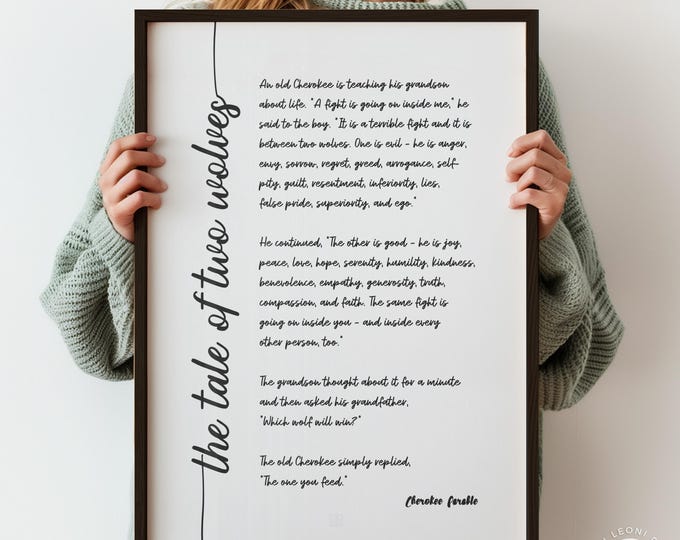 the tale of two wolves
An old Cherokee is teaching his grandson
about life. "A fight is going on inside me," he
said to the boy. "It is a terrible fight and it is
between two wolves. One is evil - he is anger,
envy, sorrow, regret, greed, arrogance, self-
pity, guilt, resentment, inferiority, lies,
false pride, superiority, and ego."
He continued, "The other is good - he is joy,
peace, love, hope, serenity, humility, kindness,
benevolence, empathy, generosity, truth,
compassion, and faith. The same fight is
going on inside you - and inside every
other person, too."
The grandson thought about it for a minute
and then asked his grandfather,
"Which wolf will win?"
The old Cherokee simply replied,
"The one you feed."
Cherokee Parable
LEONI